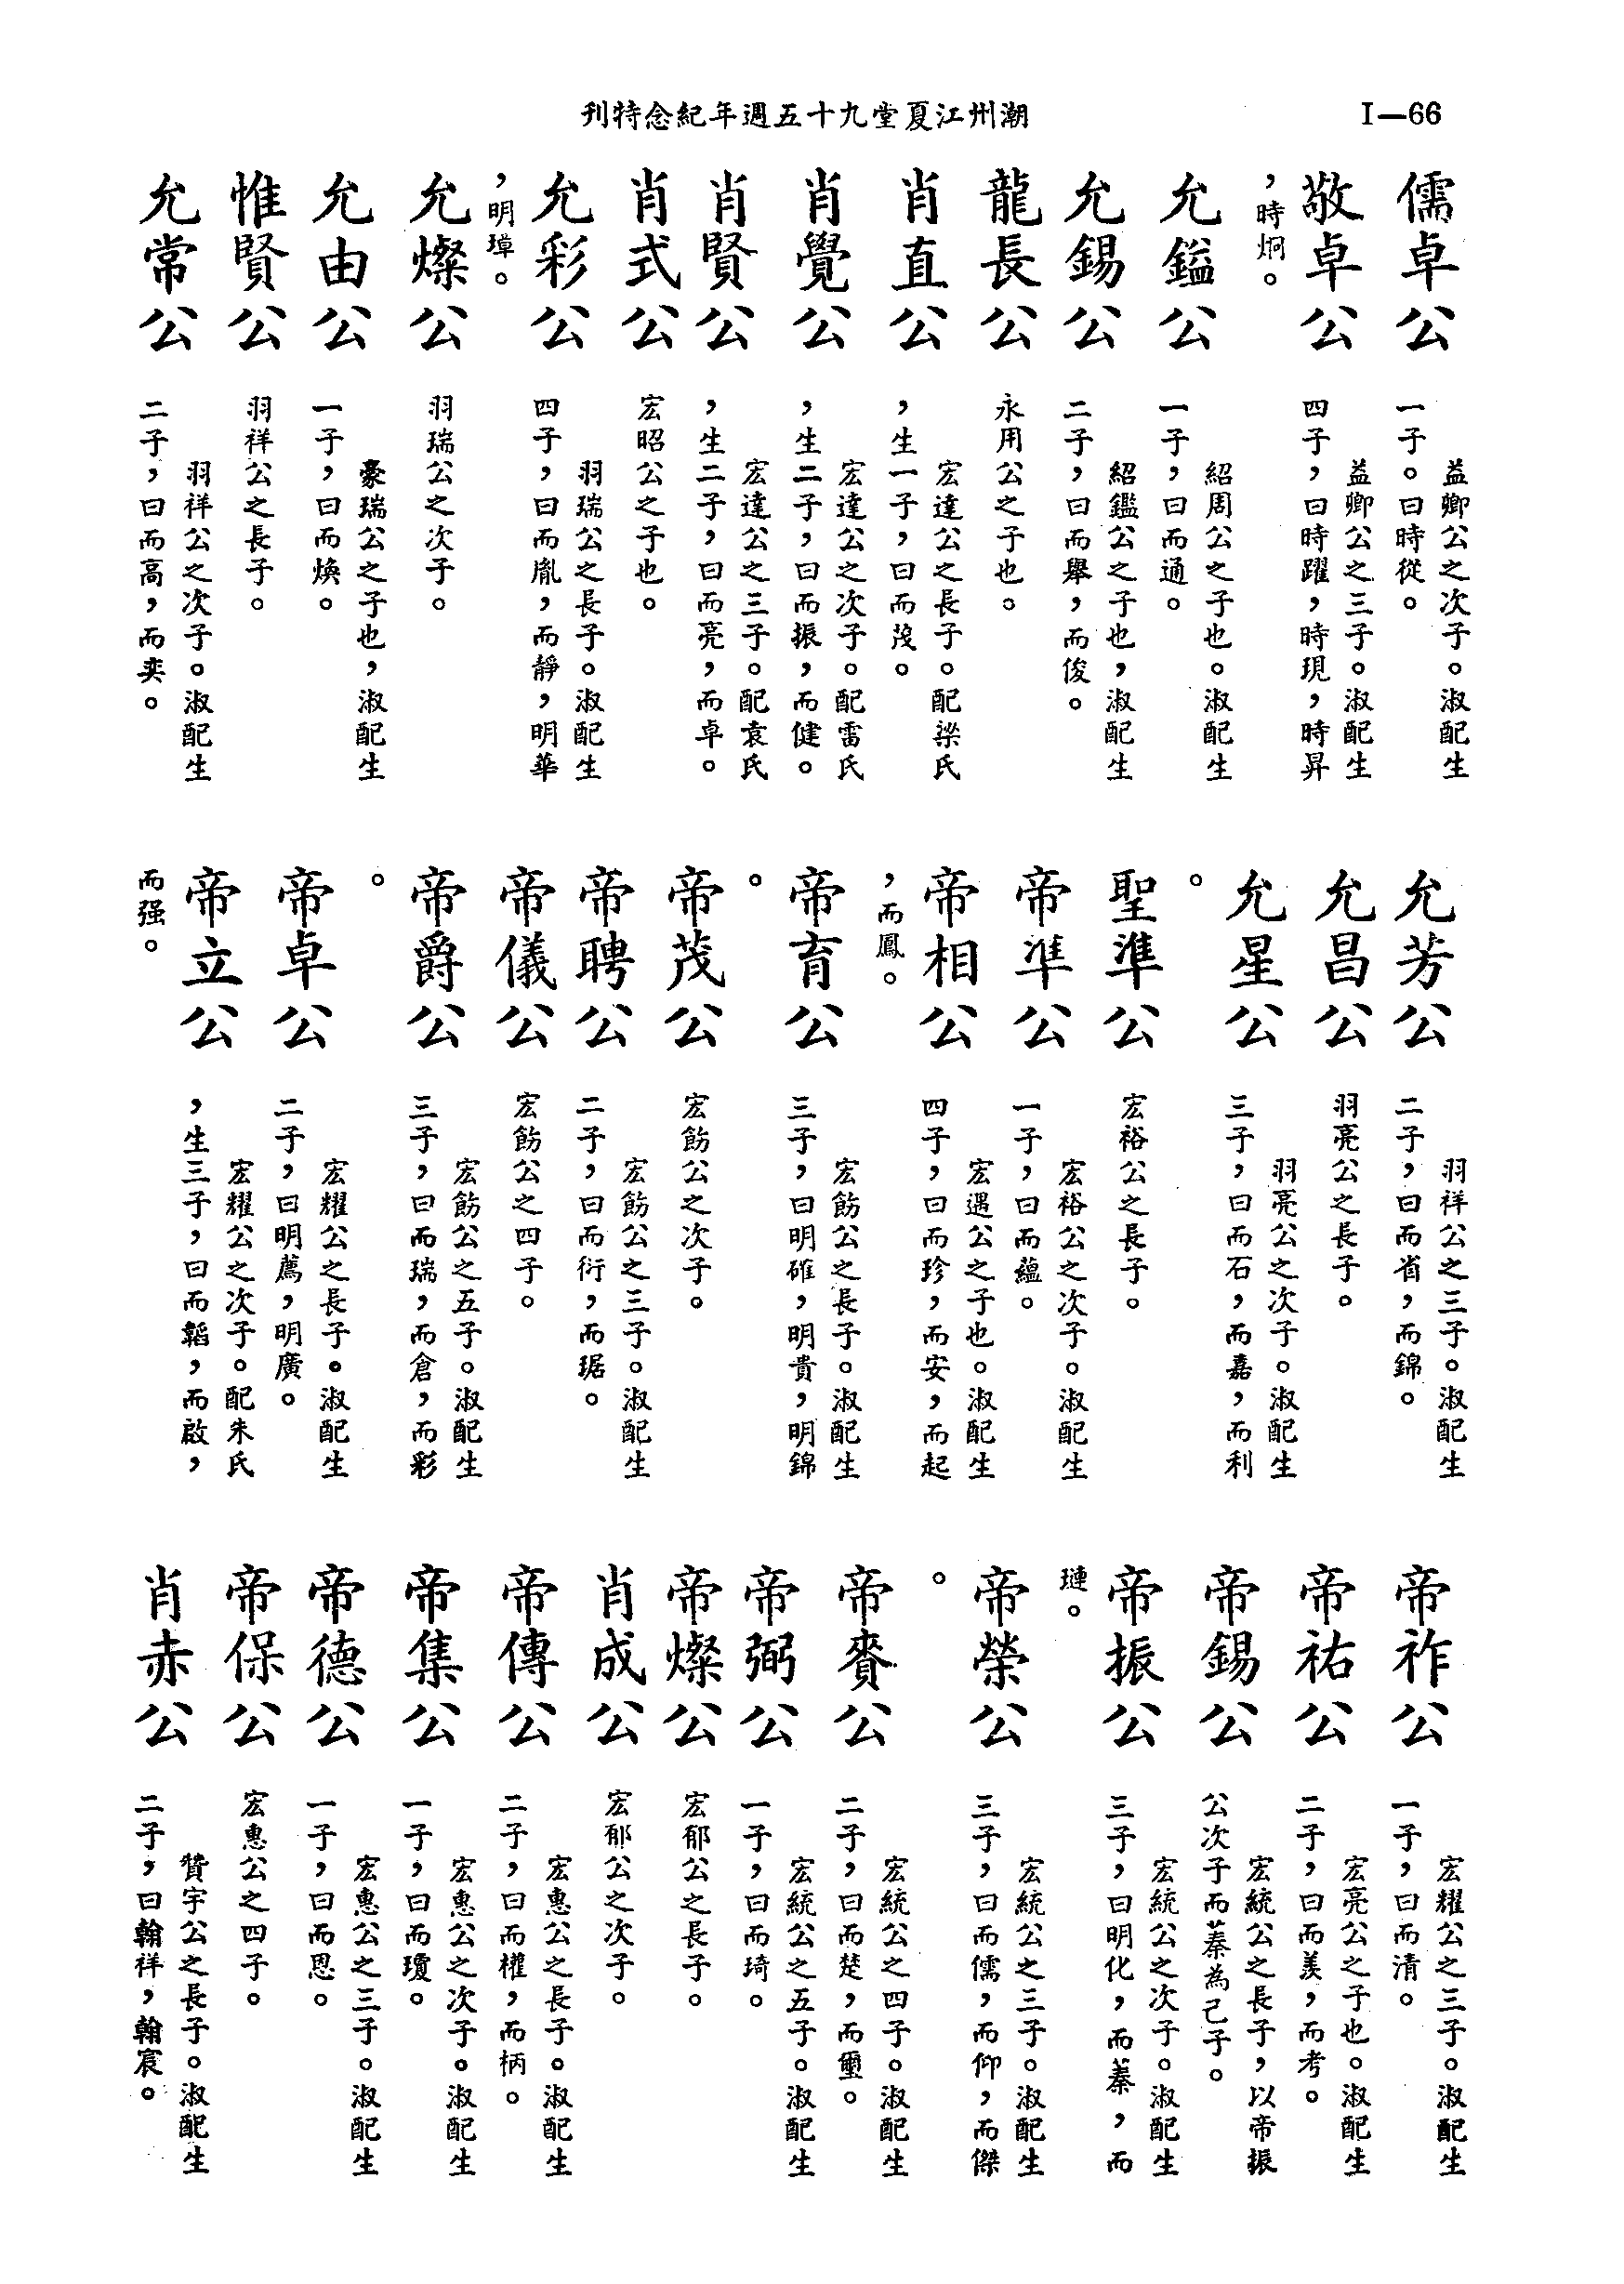 潮州江夏堂九十五週年紀念特刊
I—66
儒卓公
益卿公之次子。淑配生
一子。曰時從。
敬卓公
益卿公之三子。淑配生
四子，曰時躍，時現，時昇
，時炯。
允鎰公
紹周公之子也。淑配生
一子，曰而通。
允錫公
紹鑑公之子也，淑配生
二子，曰而舉，而俊。
龍長公
永用公之子也。
肖直公
宏達公之長子。配梁氏
，生一子，曰而茂。
肖覺公
宏達公之次子。配雷氏
，生二子，曰而振，而健。
肖賢公
宏達公之三子。配袁氏
，生二子，曰而亮，而卓。
肖式公
宏昭公之子也。
允彩公
羽瑞公之長子。淑配生
四子，曰而胤，而靜，明華
，明璋。
允燦公
羽瑞公之次子。
允由公
豪瑞公之子也，淑配生
一子，曰而煥。
惟賢公
羽祥公之長子。
允常公
羽祥公之次子。淑配生
二子，曰而高，而奕。
允芳公
羽祥公之三子。淑配生
二子，曰而省，而錦。
允昌公
羽亮公之長子。
允星公
羽亮公之次子。淑配生
三子，曰而石，而嘉，而利
。
聖準公
宏裕公之長子。
帝準公
宏裕公之次子。淑配生
一子，曰而蘊。
帝相公
宏遇公之子也。淑配生
四子，曰而珍，而安，而起
，而鳳。
帝育公
宏飭公之長子。淑配生
三子，曰明確，明貴，明錦
。
帝茂公
宏飭公之次子。
帝聘公
宏飭公之三子。淑配生
二子，曰而衍，而琚。
帝儀公
宏飭公之四子。
帝爵公
宏飭公之五子。淑配生
三子，曰而瑞，而倉，而彩
。
帝卓公
宏耀公之長子。淑配生
二子，曰明薦，明廣。
帝立公
宏耀公之次子。配朱氏
，生三子，曰而韜，而啟，
而强。
帝祚公
宏耀公之三子。淑配生
一子，曰而清。
帝祐公
宏亮公之子也。淑配生
二子，曰而羡，而考。
帝錫公
宏統公之長子，以帝振
公次子而蓁為己子。
帝振公
宏統公之次子。淑配生
三子，曰明化，而蓁，而
璉。
帝榮公
宏統公之三子。淑配生
三子，曰而儒，而仰，而傑
。
帝賚公
宏統公之四子。淑配生
二子，曰而楚，而璽。
帝弼公
宏統公之五子。淑配生
一子，曰而琦。
帝燦公
宏郁公之長子。
肖成公
宏郁公之次子。
帝傳公
宏惠公之長子。淑配生
二子，曰而權，而柄。
帝集公
宏惠公之次子。淑配生
一子，曰而瓊。
帝德公
宏惠公之三子。淑配生
一子，曰而恩。
帝保公
宏惠公之四子。
肖赤公
贊宇公之長子。淑配生
二子，曰翰祥，翰宸。